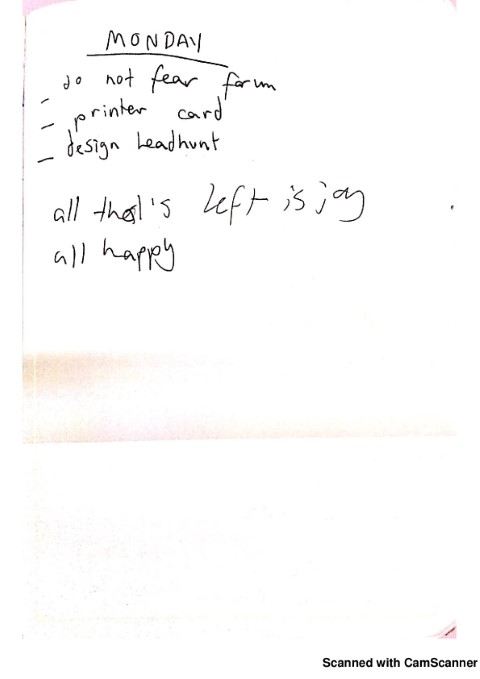 MONDAY
- do not fear forum
- printer card
- design headhunt
all that's left is joy
all happy
Scanned with CamScanner